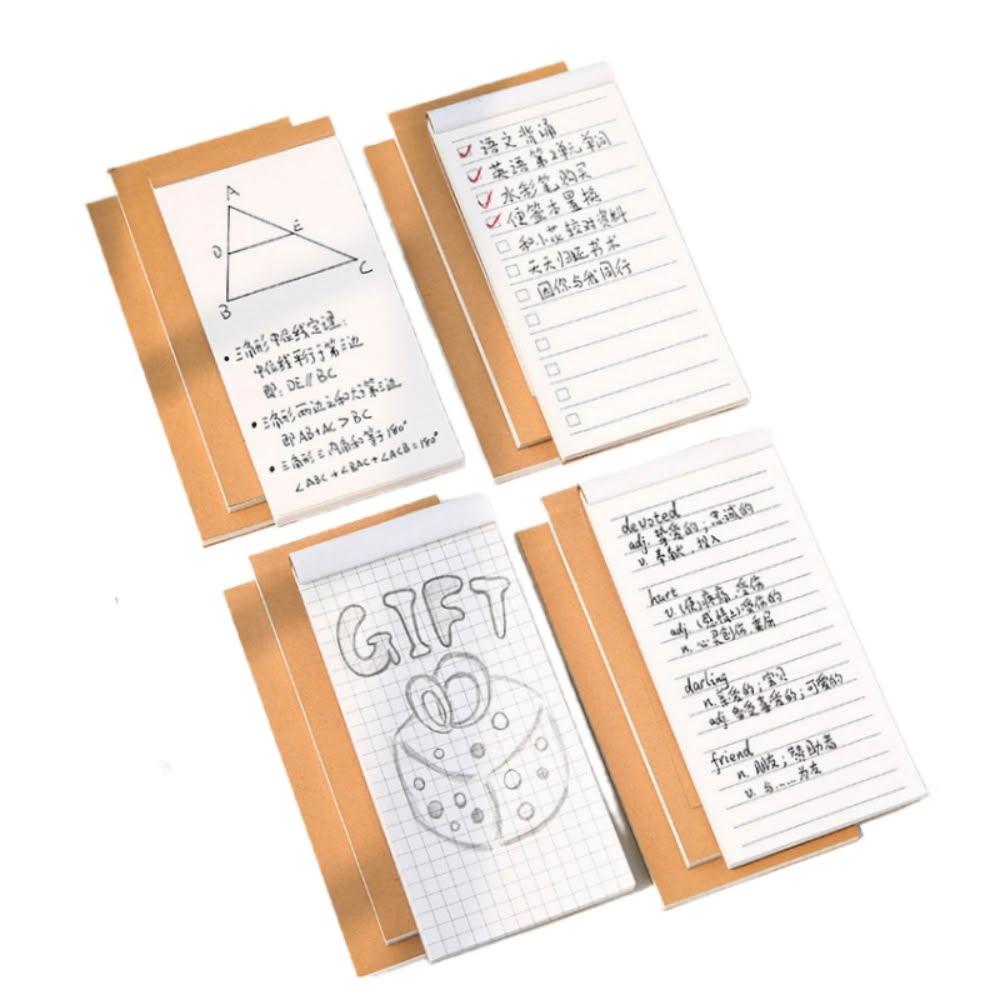 A
D
E
B
C
• 三角形中位线定理:
中位线平行于第三边
即: DE // BC
• 三角形两边之和大于第三边
即 AB+AC > BC
• 三角形三内角和等于180°
∠ABC + ∠BAC + ∠ACB = 180°
语文背诵
英语第2单元单词
水彩笔购买
便签本置换
和小花校对资料
天天归还书本
因你与我同行
GIFT
devoted
adj. 挚爱的; 忠诚的
v. 奉献, 投入
hurt
v. (使)疼痛, 受伤
adj. (感情上)受伤的
n. 心灵创伤, 委屈
darling
n. 亲爱的; 宝贝
adj. 备受喜爱的; 可爱的
friend
n. 朋友; 赞助者
v. 与……为友